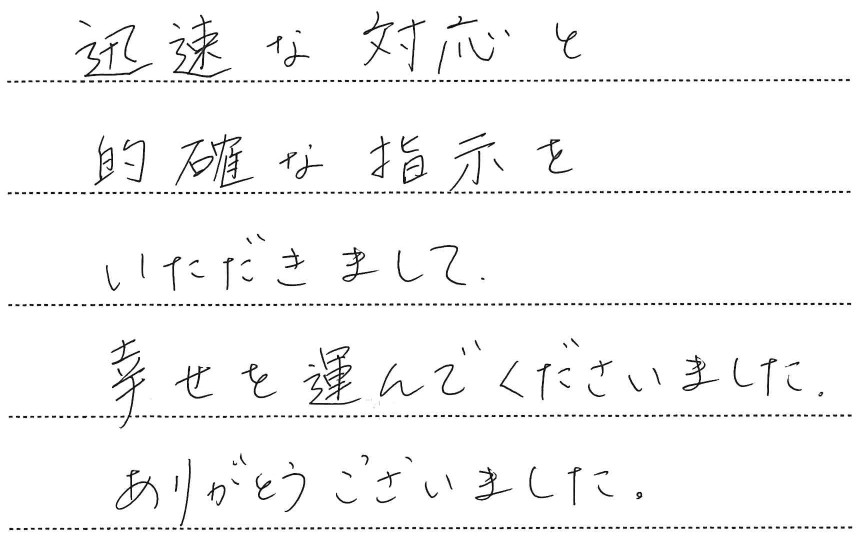 迅速な対応と
的確な指示を
いただきまして、
幸せを運んでくださいました。
ありがとうございました。